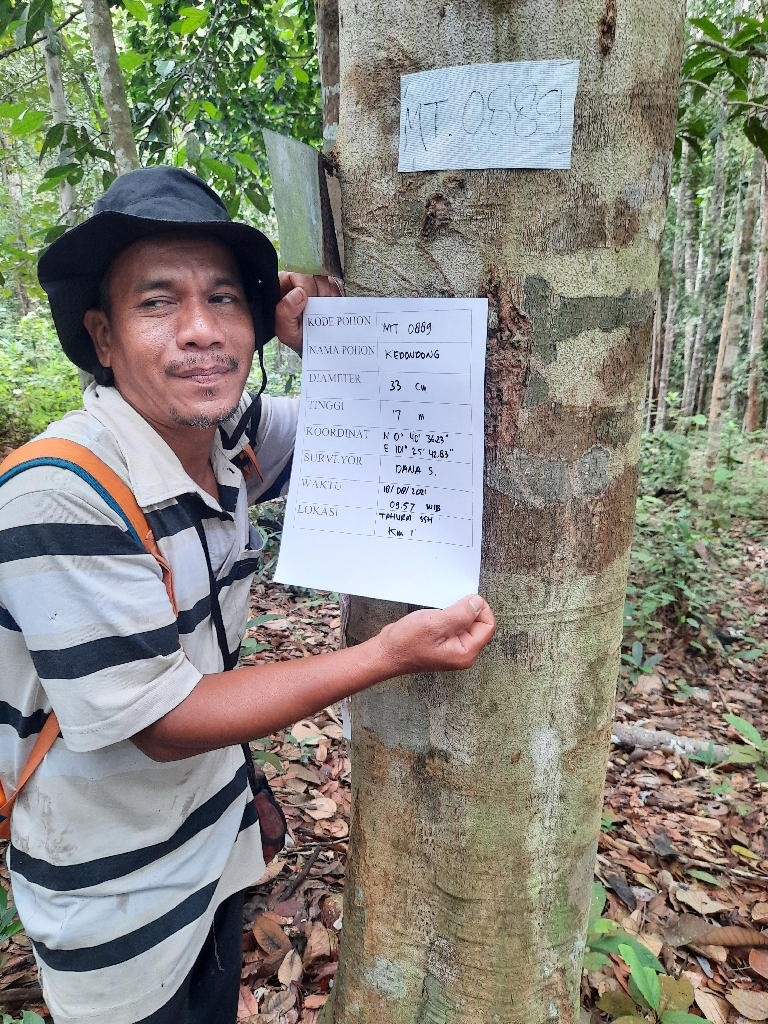 MT. 0889
KODE POHON MT 0889
NAMA POHON KEDONDONG
DIAMETER 33 Cm
TINGGI 17 m
KOORDINAT N 0° 40' 36.23"
E 101° 25' 42.83"
SURVEYOR DANA S.
WAKTU 18/08/2021
09.57 WIB
LOKASI TAHURA SSH
Km 1